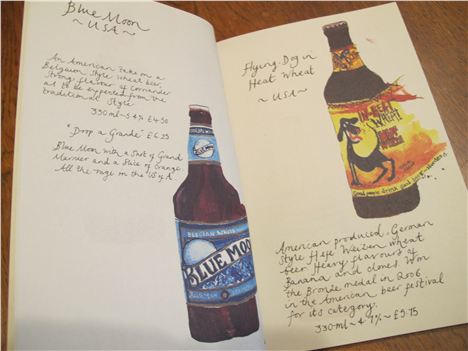 Blue Moon
~ USA ~
An American take on a
Belgian Style wheat beer,
Strong flavour of corriander
as to be expected from the
traditional Style
330ml ~ 5.4% £4.50
"Drop a Grande" £6.25
Blue Moon with a Shot of Grand
Marnier and a Slice of orange.
All the rage in the US of A
BLUE MOON
BELGIAN WHITE
BLUE MOON
Flying Dog in
Heat Wheat
~ USA ~
IN-HEAT
WHEAT
Good people drink good beer
American produced, German
Style Hefe Weizen wheat
beer. Heavy flavours of
Banana and cloves. Won
the Bronze medal in 2006
in the American beer festival
for its category.
330ml ~ 4.7% ~ £5.75